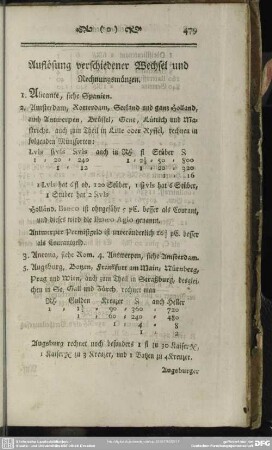 479
Auflösung verschiedener Wechsel und
Rechnungsmünzen.
1. Alicante, siehe Spanien.
2. Amsterdam, Rotterdam, Seeland und ganz Holland,
auch Antwerpen, Brüssel, Gent, Lüttich und Ma-
stricht, auch zum Theil in Lille oder Ryssel, rechnen in
folgenden Münzsorten:
Lvls ßvls Svls auch in Rß fl Stüber
1 , 20 , 240 1 , 2½ , 50 , 800
1 , 12 1 , 20 , 320
1 , 16
1 Lvls hat 6 fl od. 120 Stüber, 1 ßvls hat 6 Stüber,
1 Stüber hat 2 Svls
Holländ. Banco ist ohngefehr 5 pC. besser als Courant,
und dieses wird die Banco Agio genannt.
Antwerper Permißgeld ist unveränderlich 16⅔ pC. besser
als Courantgeld.
3. Ancona, siehe Rom. 4. Antwerpen, siehe Amsterdam.
5. Augsburg, Botzen, Franckfurt am Main, Nürnberg,
Prag und Wien, auch zum Theil in Straßburg, desglei-
chen in St. Gall und Zürch, rechnet man
Gulden Kreuzer auch Heller
1 , 1½ , 90 , 360 , 720
1 , 60 , 240 , 480
1 , 4 , 8
1 , 2
Augsburg rechnet noch besonders 1 fl zu 20 Kaiser
1 Kaiser zu 3 Kreuzer, und 1 Batzen zu 4 Kreuzer.
Augsburger